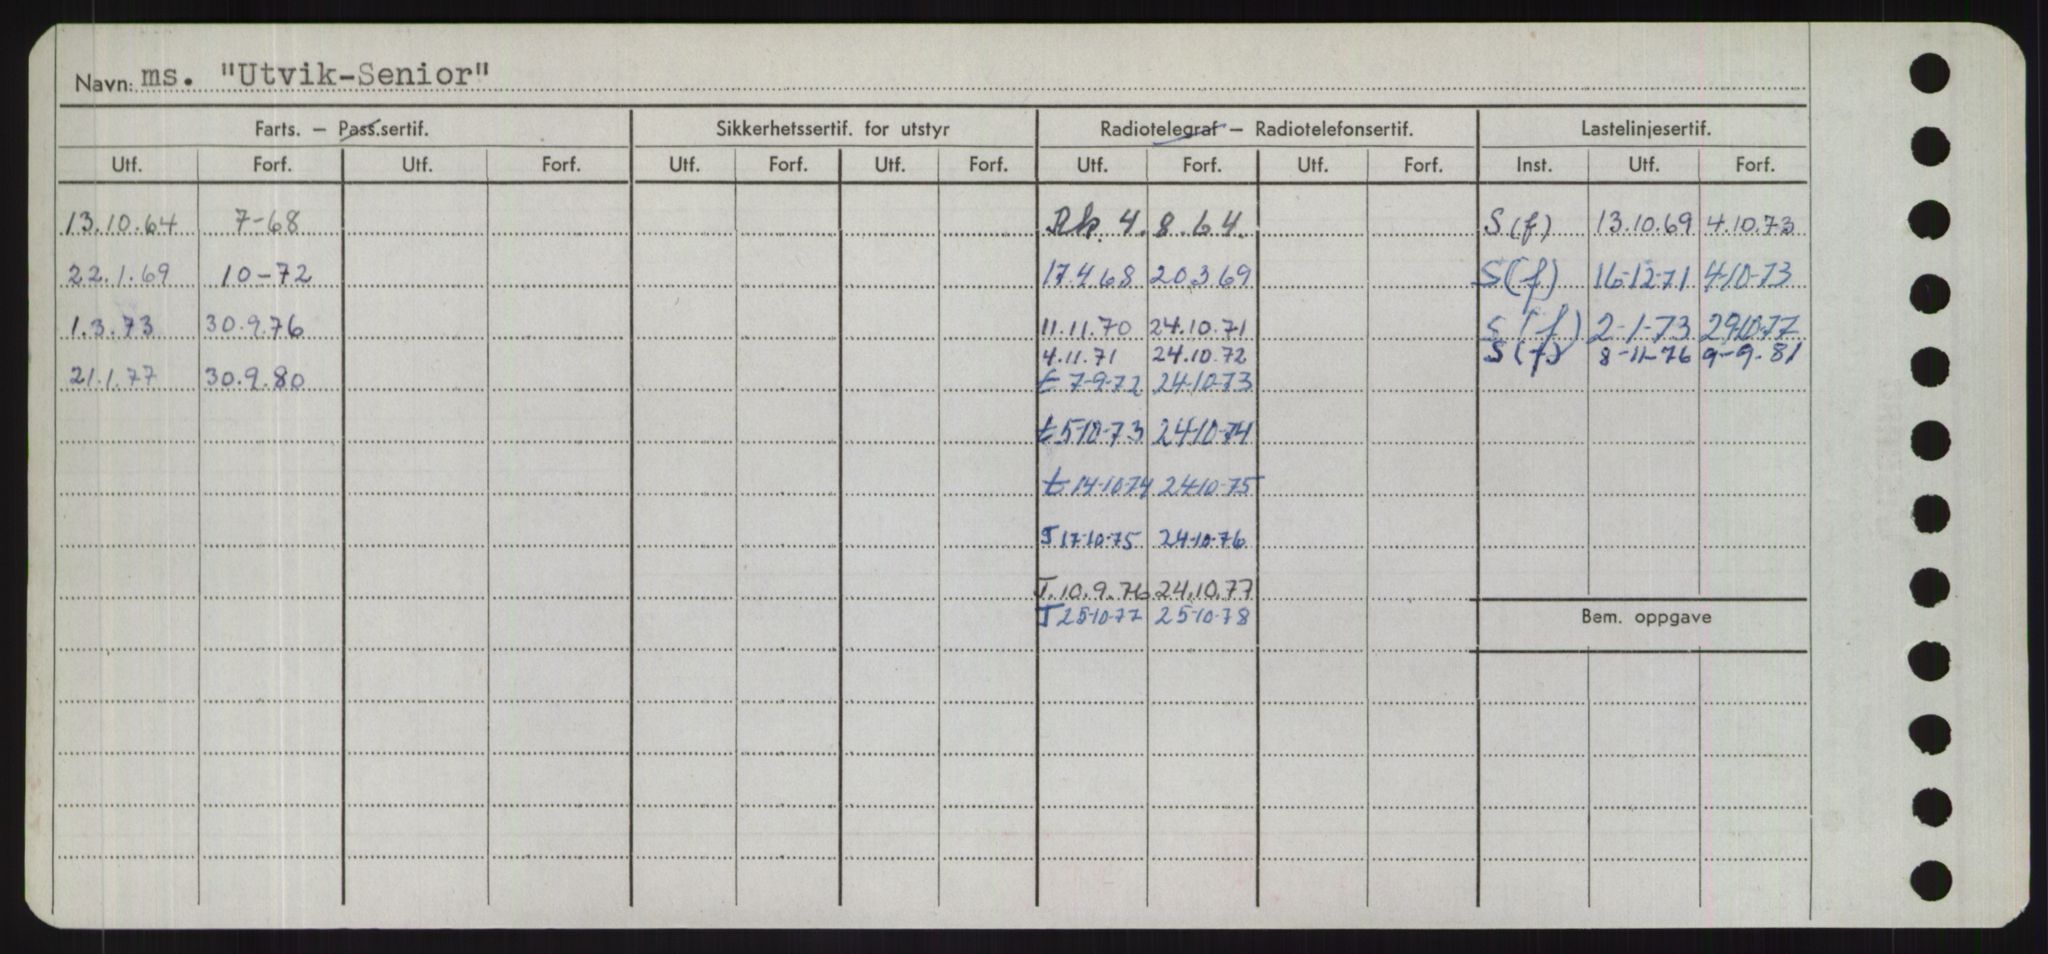 Navn: ms. "Utvik-Senior"
Farts. – Pass.sertif. Sikkerhetssertif. for utstyr Radiotelegraf – Radiotelefonsertif. Lastelinjesertif.
Utf. Forf. Utf. Forf. Utf. Forf. Utf. Forf. Utf. Forf. Utf. Forf. Inst. Utf. Forf.
13.10.64 7-68 Rk. 4.8.64. S(f) 13.10.69 4.10.73
22.1.69 10-72 17.4.68 20.3.69 S(f) 16-12-71 4-10-73
1.3.73 30.9.76 11.11.70 24.10.71 S(f) 2-1-73 29-10-77
4.11.71 24.10.72 S(f) 8-11-76 9-9-81
21.1.77 30.9.80 t 7-9-72 24-10-73
t 5-10-73 24-10-74
t 14-10-74 24-10-75
T 17-10-75 24-10-76
T. 10.9.76 24.10.77
T 25-10-77 25-10-78
Bem. oppgave